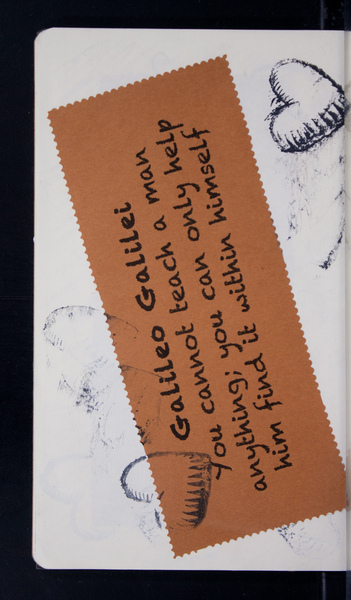 Galileo Galilei
You cannot teach a man
anything; you can only help
him find it within himself